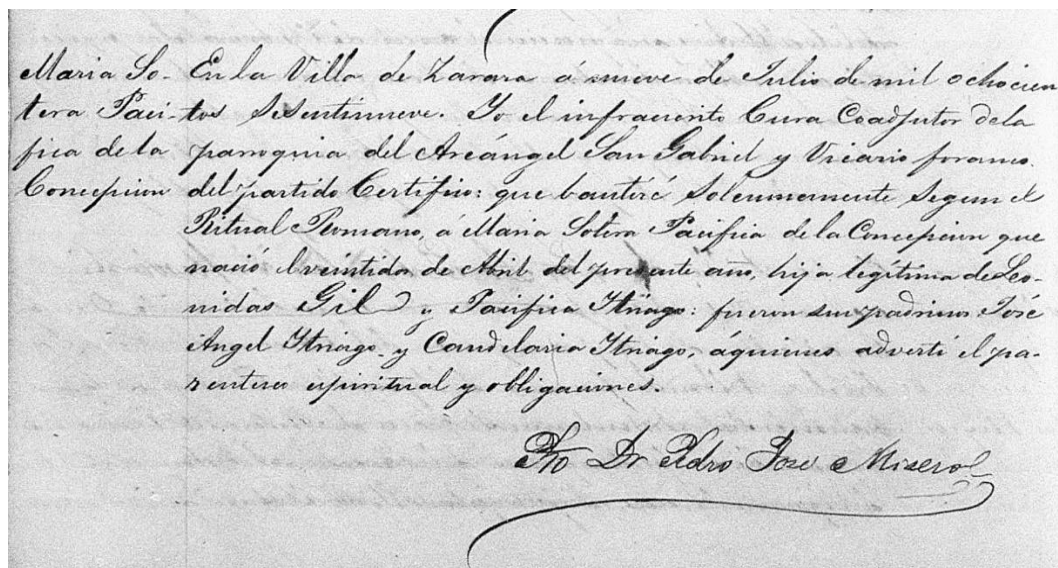 Maria So- En la Villa de Zaraza á nueve de Julio de mil ochocien
tera Paci- tos Sesentinueve. Yo el infracrito Cura Coadjutor dela
fica de la parroquia del Arcángel San Gabriel y Vicario foraneo
Concepcion del partido Certifico: que bauticé Solennemente Segun el
Ritual Romano, á Maria Sotera Pacifica de la Concepcion que
nació el veintidos de Abril del presente año, hija legítima de Leo-
nidas Gil y Pacifica Ytriago: fueron sus padrinos José
Angel Ytriago y Candelaria Ytriago, áquienes advertí el pa-
rentesco espiritual y obligaciones.
Pbo Dr Pedro José